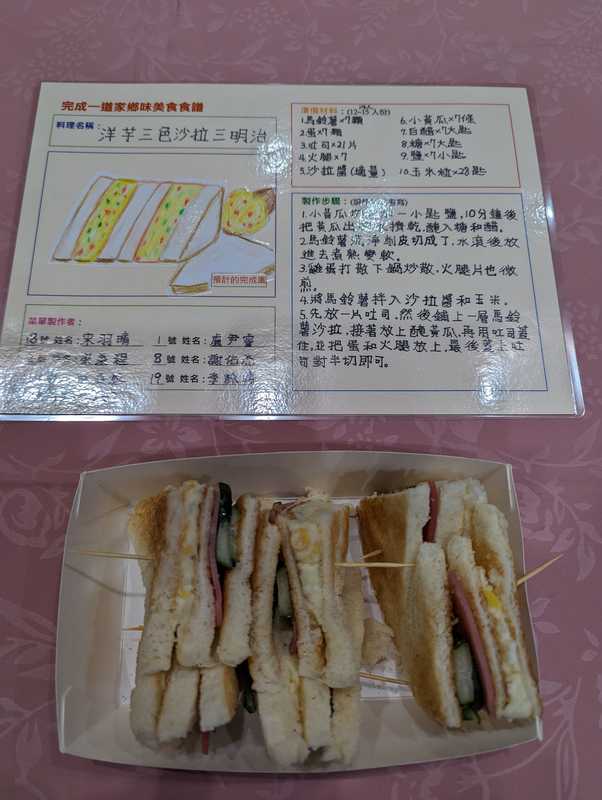 完成一道家鄉味美食食譜
料理名稱：洋芋三色沙拉三明治
預計的完成圖
菜單製作者：
號 姓名：宋羽晴
1 號 姓名：盧尹寧
號 姓名：
8 號 姓名：謝佑
號
19 號 姓名：李
準備材料：(12~15人份)
1.馬鈴薯×7顆
2.蛋×7顆
3.吐司×21片
4.火腿×7
5.沙拉醬(適量)
6.小黃瓜×7條
7.白醋×7大匙
8.糖×7大匙
9.鹽×7小匙
10.玉米粒×28匙
製作步驟：
1.小黃瓜 一小匙 鹽,10分鐘後
把黃瓜出 水擠乾,醃入糖和醋。
2.馬鈴薯洗淨削皮切成丁,水滾後放
進去煮熟變軟。
3.雞蛋打散下鍋炒散,火腿片也微
煎。
4.將馬鈴薯拌入沙拉醬和玉米。
5.先放一片吐司,然後鋪上一層馬鈴
薯沙拉,接著放上醃黃瓜,再用吐司蓋
住,並把蛋和火腿放上,最後蓋上吐
司對半切即可。